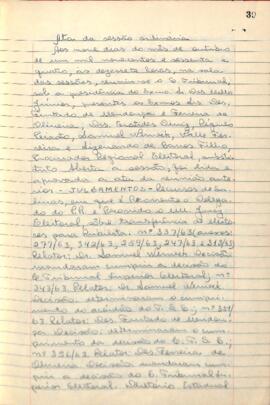 39
Ata da sessão ordinária
Aos nove dias do mês de outubro
de um mil novecentos e sessenta e
quatro, às dezessete horas, na sala
das sessões, reuniu-se o E. Tribunal,
sob a presidência do Exmo. Sr. Des. Mello
Júnior, presentes os Exmos. Srs. Des.
Furtado de Mendonça e Ferreira de
Oliveira, Drs.
Peixoto, Samuel Werneck, Valle Fer-
reira e de Barros Filho,
Procurador Regional Eleitoral, subs-
tituto. Aberta a sessão, foi lida e
aprovada a ata da sessão ante-
rior. - JULGAMENTOS - Recursos de Sa-
linas, em que é Recorrente o Delega-
do do PR e Recorrido o MM. Juiz
Eleitoral, sôbre transferência de eleito-
res para Rubelita: nº 337/63 (anexos:
277/63, 342/63, 259/63, 247/63 e
Relator: Dr. Samuel Werneck. Decisão:
mandaram cumprir a decisão do
E. Tribunal Superior Eleitoral; nº
343/63. Relator: Dr. Samuel Werneck
Decisão: determinaram o cumpri-
mento do acórdão do T.S.E.; nº 339/
63. Relator: Des. Furtado de Mendon-
ça. Decisão: determinaram o cum-
primento da decisão do C. T. S. E.;
nº 326/63. Relator: Des. Ferreira de
Oliveira. Decisão: mandaram cum-
prir a decisão do E. Tribunal Su-
perior Eleitoral. Diretório Estadual